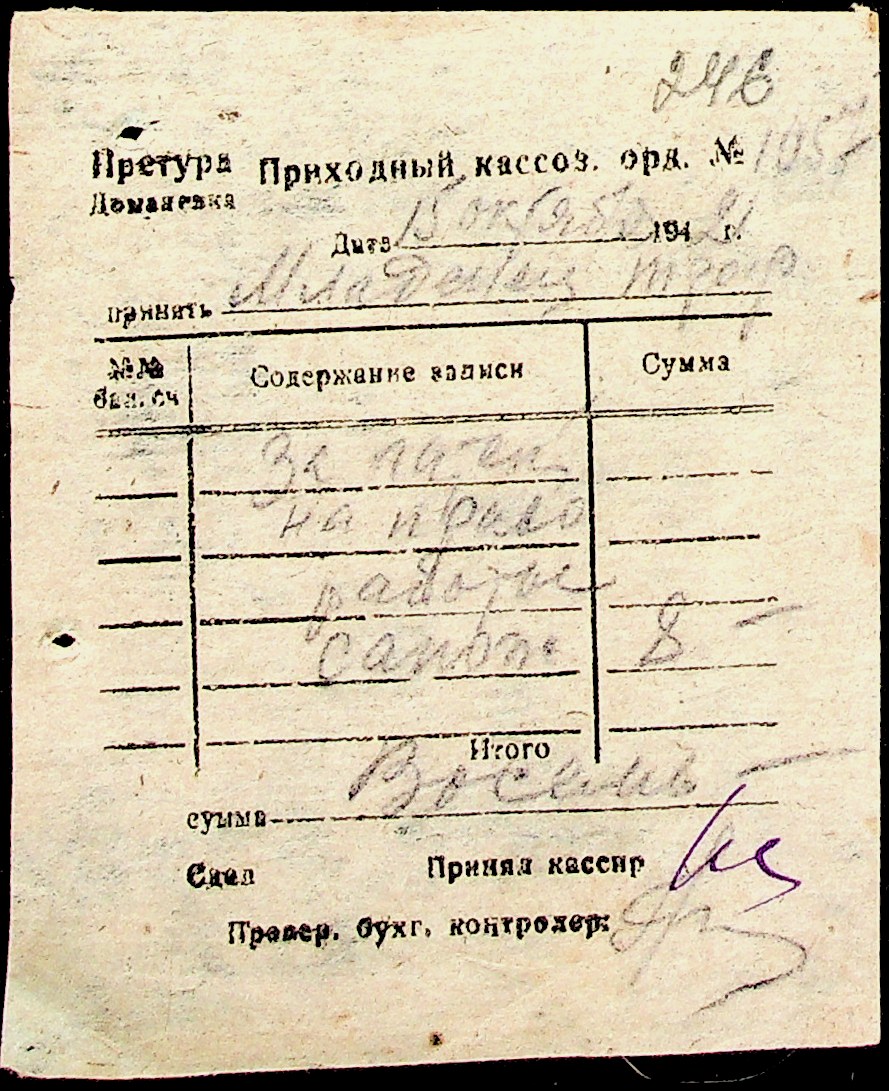 246
Претура Приходный кассов. орд. № 1057
Доманевка
Дата 15 октября 194 г.
принять
№№ бал. сч Содержание записи Сумма
За патент
на право
работы
сапож 8 —
Итого
сумма Восемь —
Сдал Принял кассир
Провер. бухг. контролер: